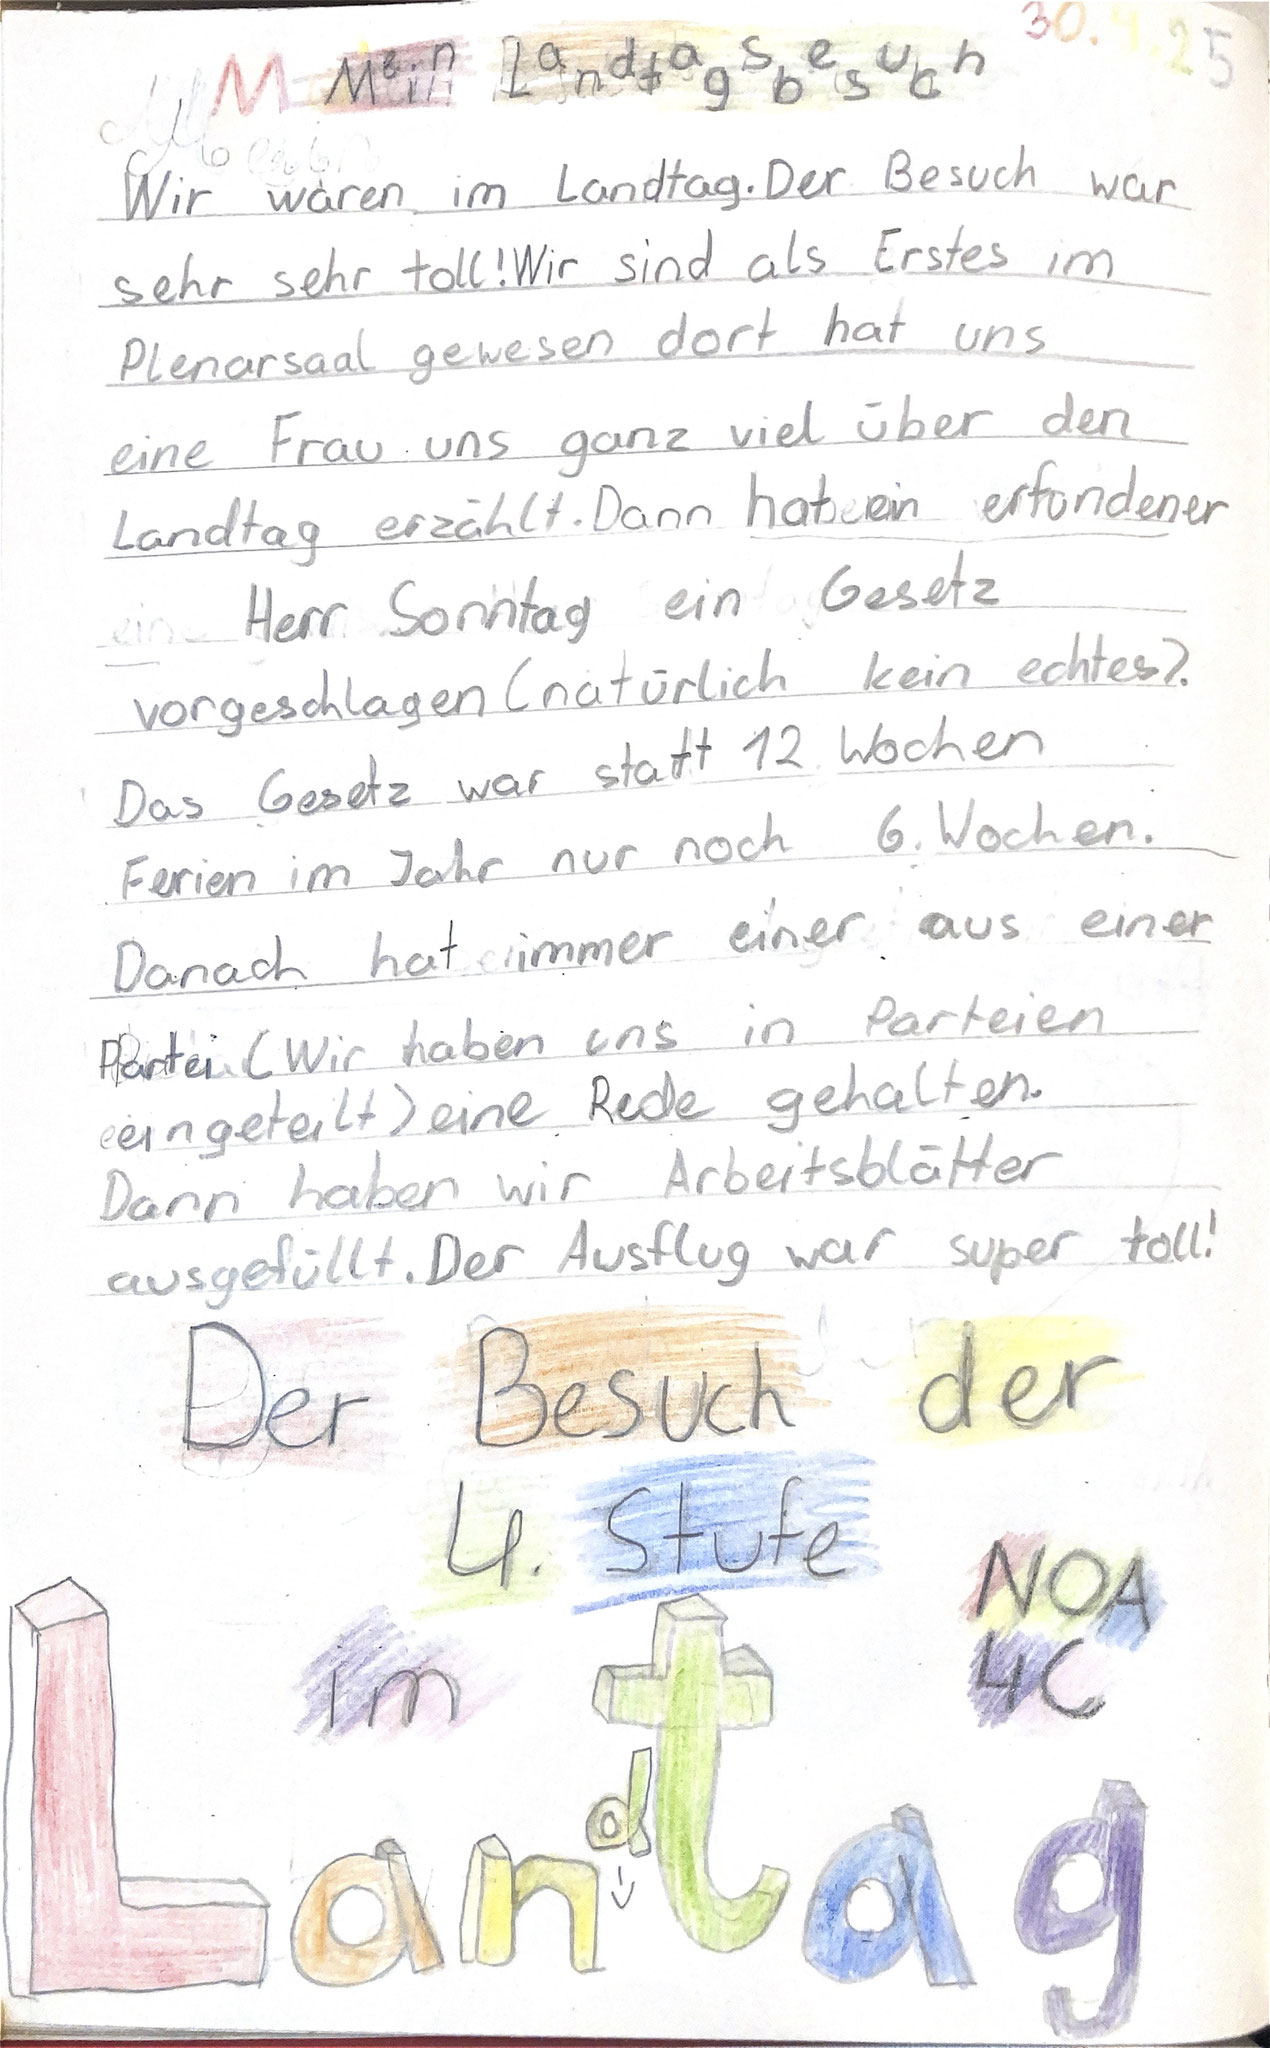 30.4.25
M Mein Landtagsbesuch
Wir waren im Landtag. Der Besuch war
sehr sehr toll! Wir sind als Erstes im
Plenarsaal gewesen dort hat uns
eine Frau uns ganz viel über den
Landtag erzählt. Dann hat ein erfundener
Herr Sonntag ein Gesetz
vorgeschlagen (natürlich kein echtes).
Das Gesetz war statt 12 Wochen
Ferien im Jahr nur noch 6. Wochen.
Danach hat immer einer aus einer
Partei (Wir haben uns in Parteien
eingeteilt) eine Rede gehalten.
Dann haben wir Arbeitsblätter
ausgefüllt. Der Ausflug war super toll!
Der Besuch der
4. Stufe
NOA
4C
im
Landtag